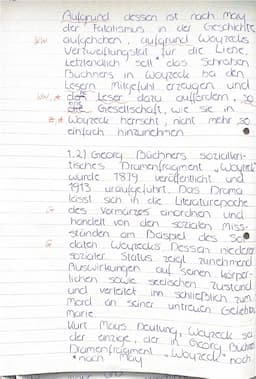 Aufgrund dessen ist nach May
der Fatalismus in der Geschichte
aufgehoben, aufgrund Woyzecks
Verzweiflungstat für die Liebe.
Letztendlich soll* das Schreiben
Büchners in Woyzeck bei den
Lesern Mitgefühl erzeugen und
Leser dazu auffordern, so
Gesellschaft, wie sie in
Woyzeck herrscht, nicht mehr so
einfach hinzunehmen
1.2) Georg Büchners sozialkri-
tisches Dramenfragment „Woyzeck"
wurde 1879 veröffentlicht und
1913 uraufgeführt. Das Drama
lässt sich in die Literaturepoche
des Vormärzes einordnen und
handelt von den sozialen Miss-
ständen am Beispiel des Sol
daten Woyzecks. Dessen niederer
sozialer Status zeigt zunehmend
Auswirkungen auf seinen körper-
lichen sowie seelischen Zustand
und verleitet ihn schließlich zum
Mord an seiner untreuen Geliebten
Marie.
Kurt Mays Deutung, Woyzeck sei
der einzige, der in Georg Büchners
Dramenfragment „Woyzeck" noch
*nach May